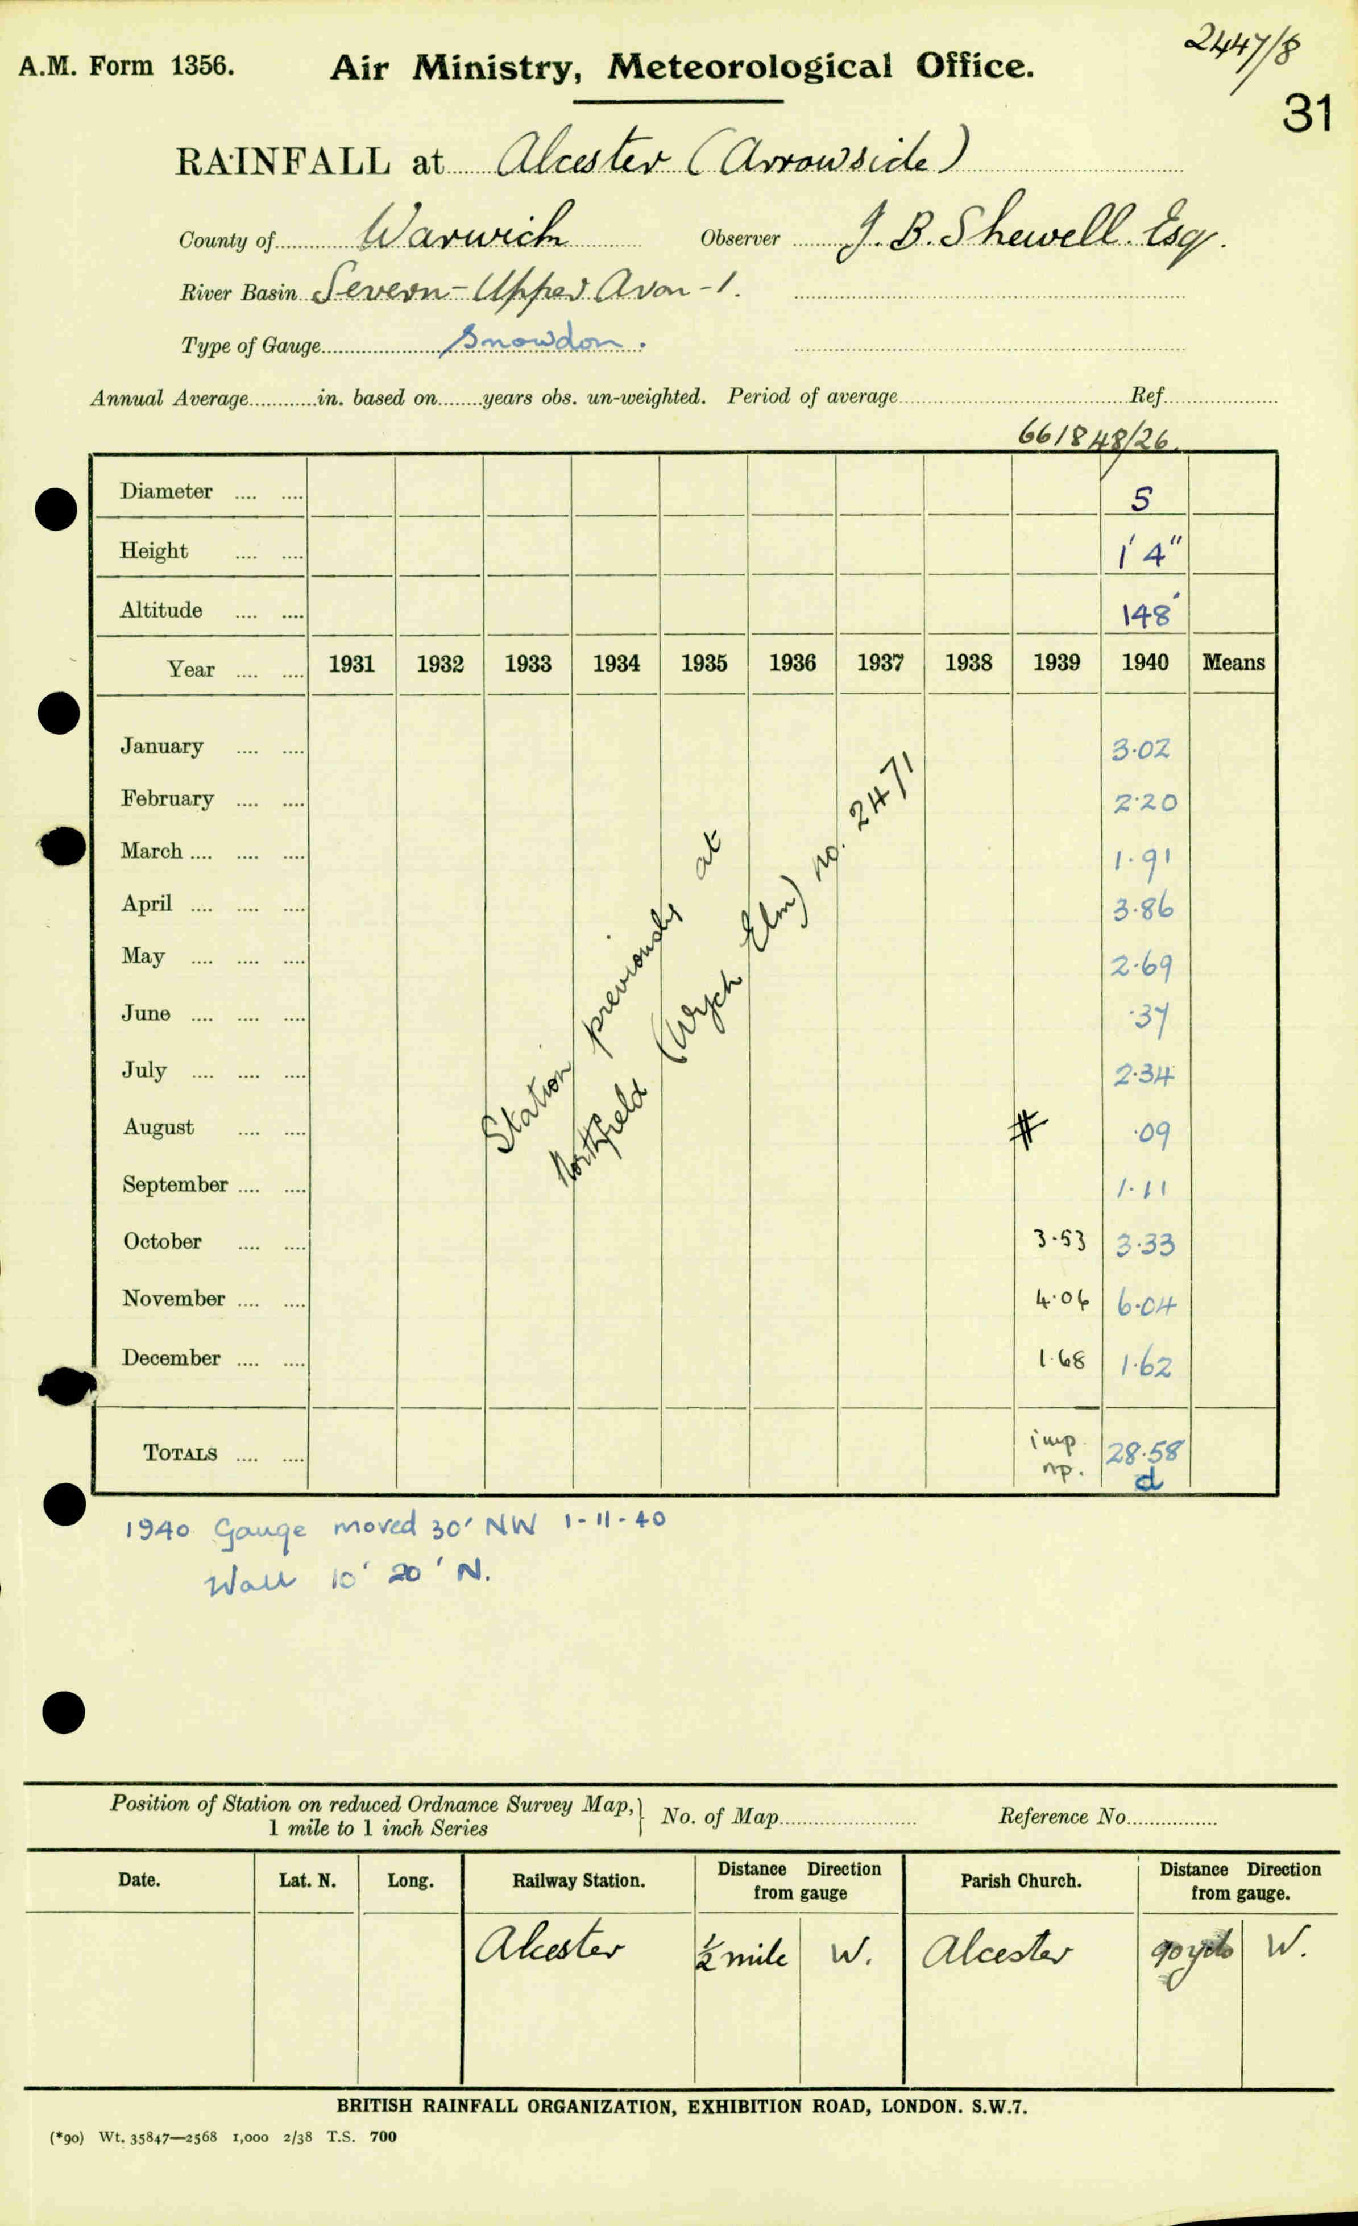 2447/8
A.M. Form 1356. Air Ministry, Meteorological Office.
31
RAINFALL at Alcester (Arrowside)
County of Warwick Observer J. B. Shewell. Esq.
River Basin Severn - Upper Avon - 1.
Type of Gauge Snowdon.
Annual Average in. based on years obs. un-weighted. Period of average Ref.
661848/26.
Diameter .... .... 5
Height .... .... 1' 4"
Altitude .... .... 148'
Year .... .... 1931 1932 1933 1934 1935 1936 1937 1938 1939 1940 Means
January .... .... 3.02
February .... .... 2.20
March .... .... .... 1.91
April .... .... .... 3.86
May .... .... .... 2.69
June .... .... .... .37
July .... .... .... 2.34
August .... .... # .09
September .... .... 1.11
October .... .... 3.53 3.33
November .... .... 4.06 6.04
December .... .... 1.68 1.62
TOTALS .... .... imp. np. 28.58
d
Station previously at
Northfield (Wych Elm) no. 2471
1940 Gauge moved 30' NW 1-11-40
Wall 10' 20' N.
Position of Station on reduced Ordnance Survey Map, } No. of Map Reference No.
1 mile to 1 inch Series
Date. Lat. N. Long. Railway Station. Distance Direction from gauge Parish Church. Distance Direction from gauge.
Alcester ½ mile W. Alcester 90 yds W.
BRITISH RAINFALL ORGANIZATION, EXHIBITION ROAD, LONDON. S.W.7.
(*90) Wt. 35847—2568 1,000 2/38 T.S. 700